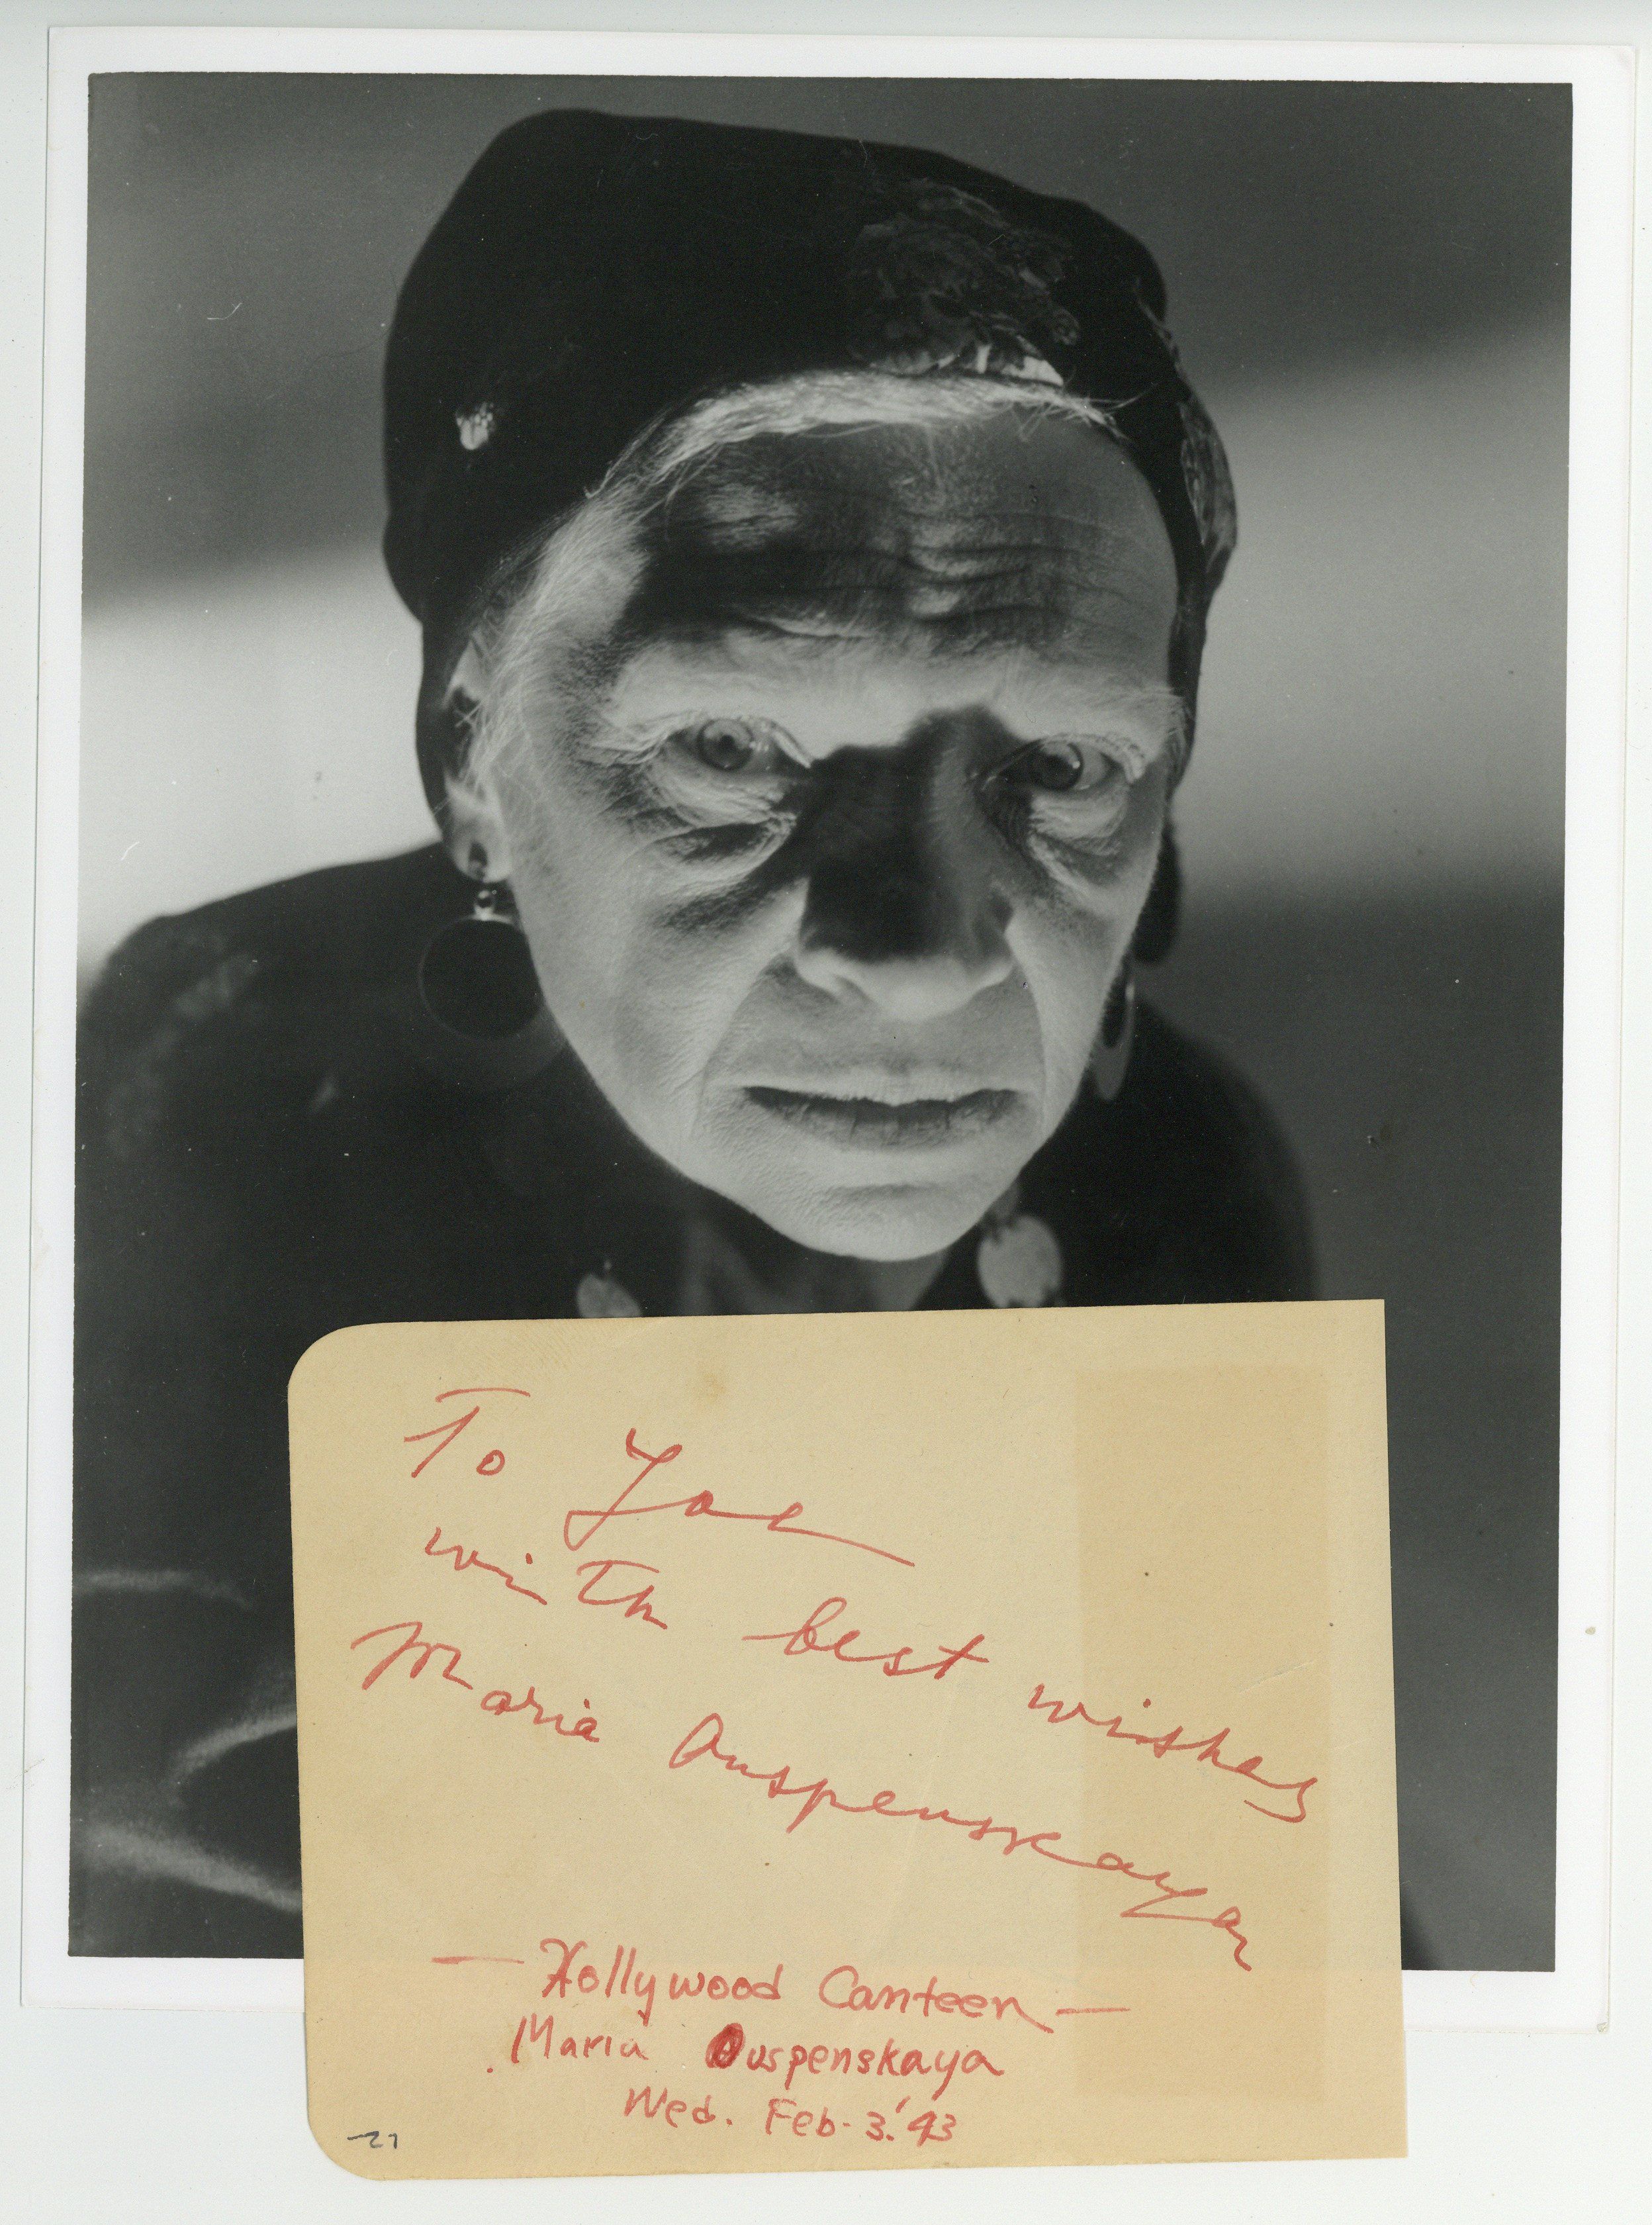 To Joe
with best wishes
Maria Ouspenskaya
— Hollywood Canteen —
Maria Ouspenskaya
Wed. Feb. 3. '43
-21